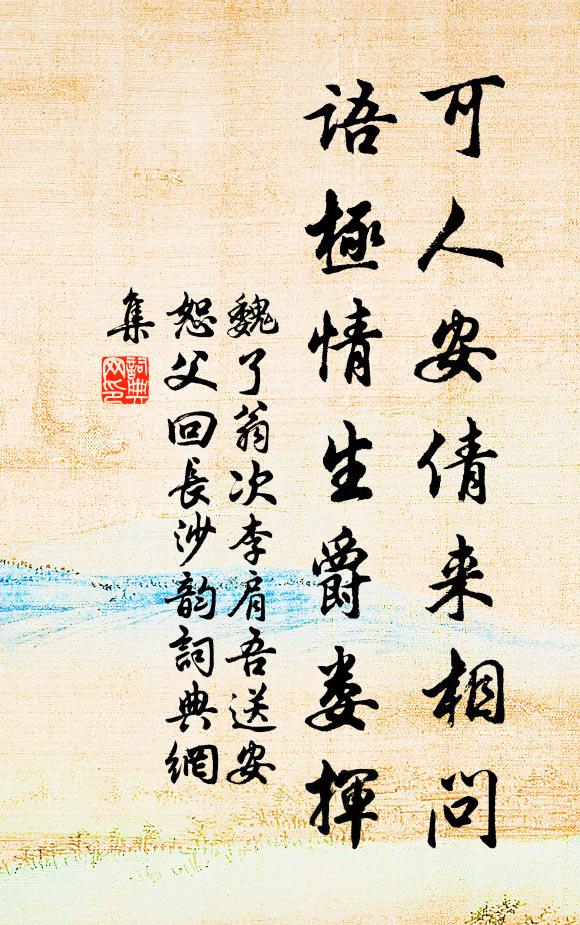 可人安倩来相問
語極情生爵娄揮
魏了翁次李肩吾送安
恕父回長沙韵詞典網
集
詞典网印